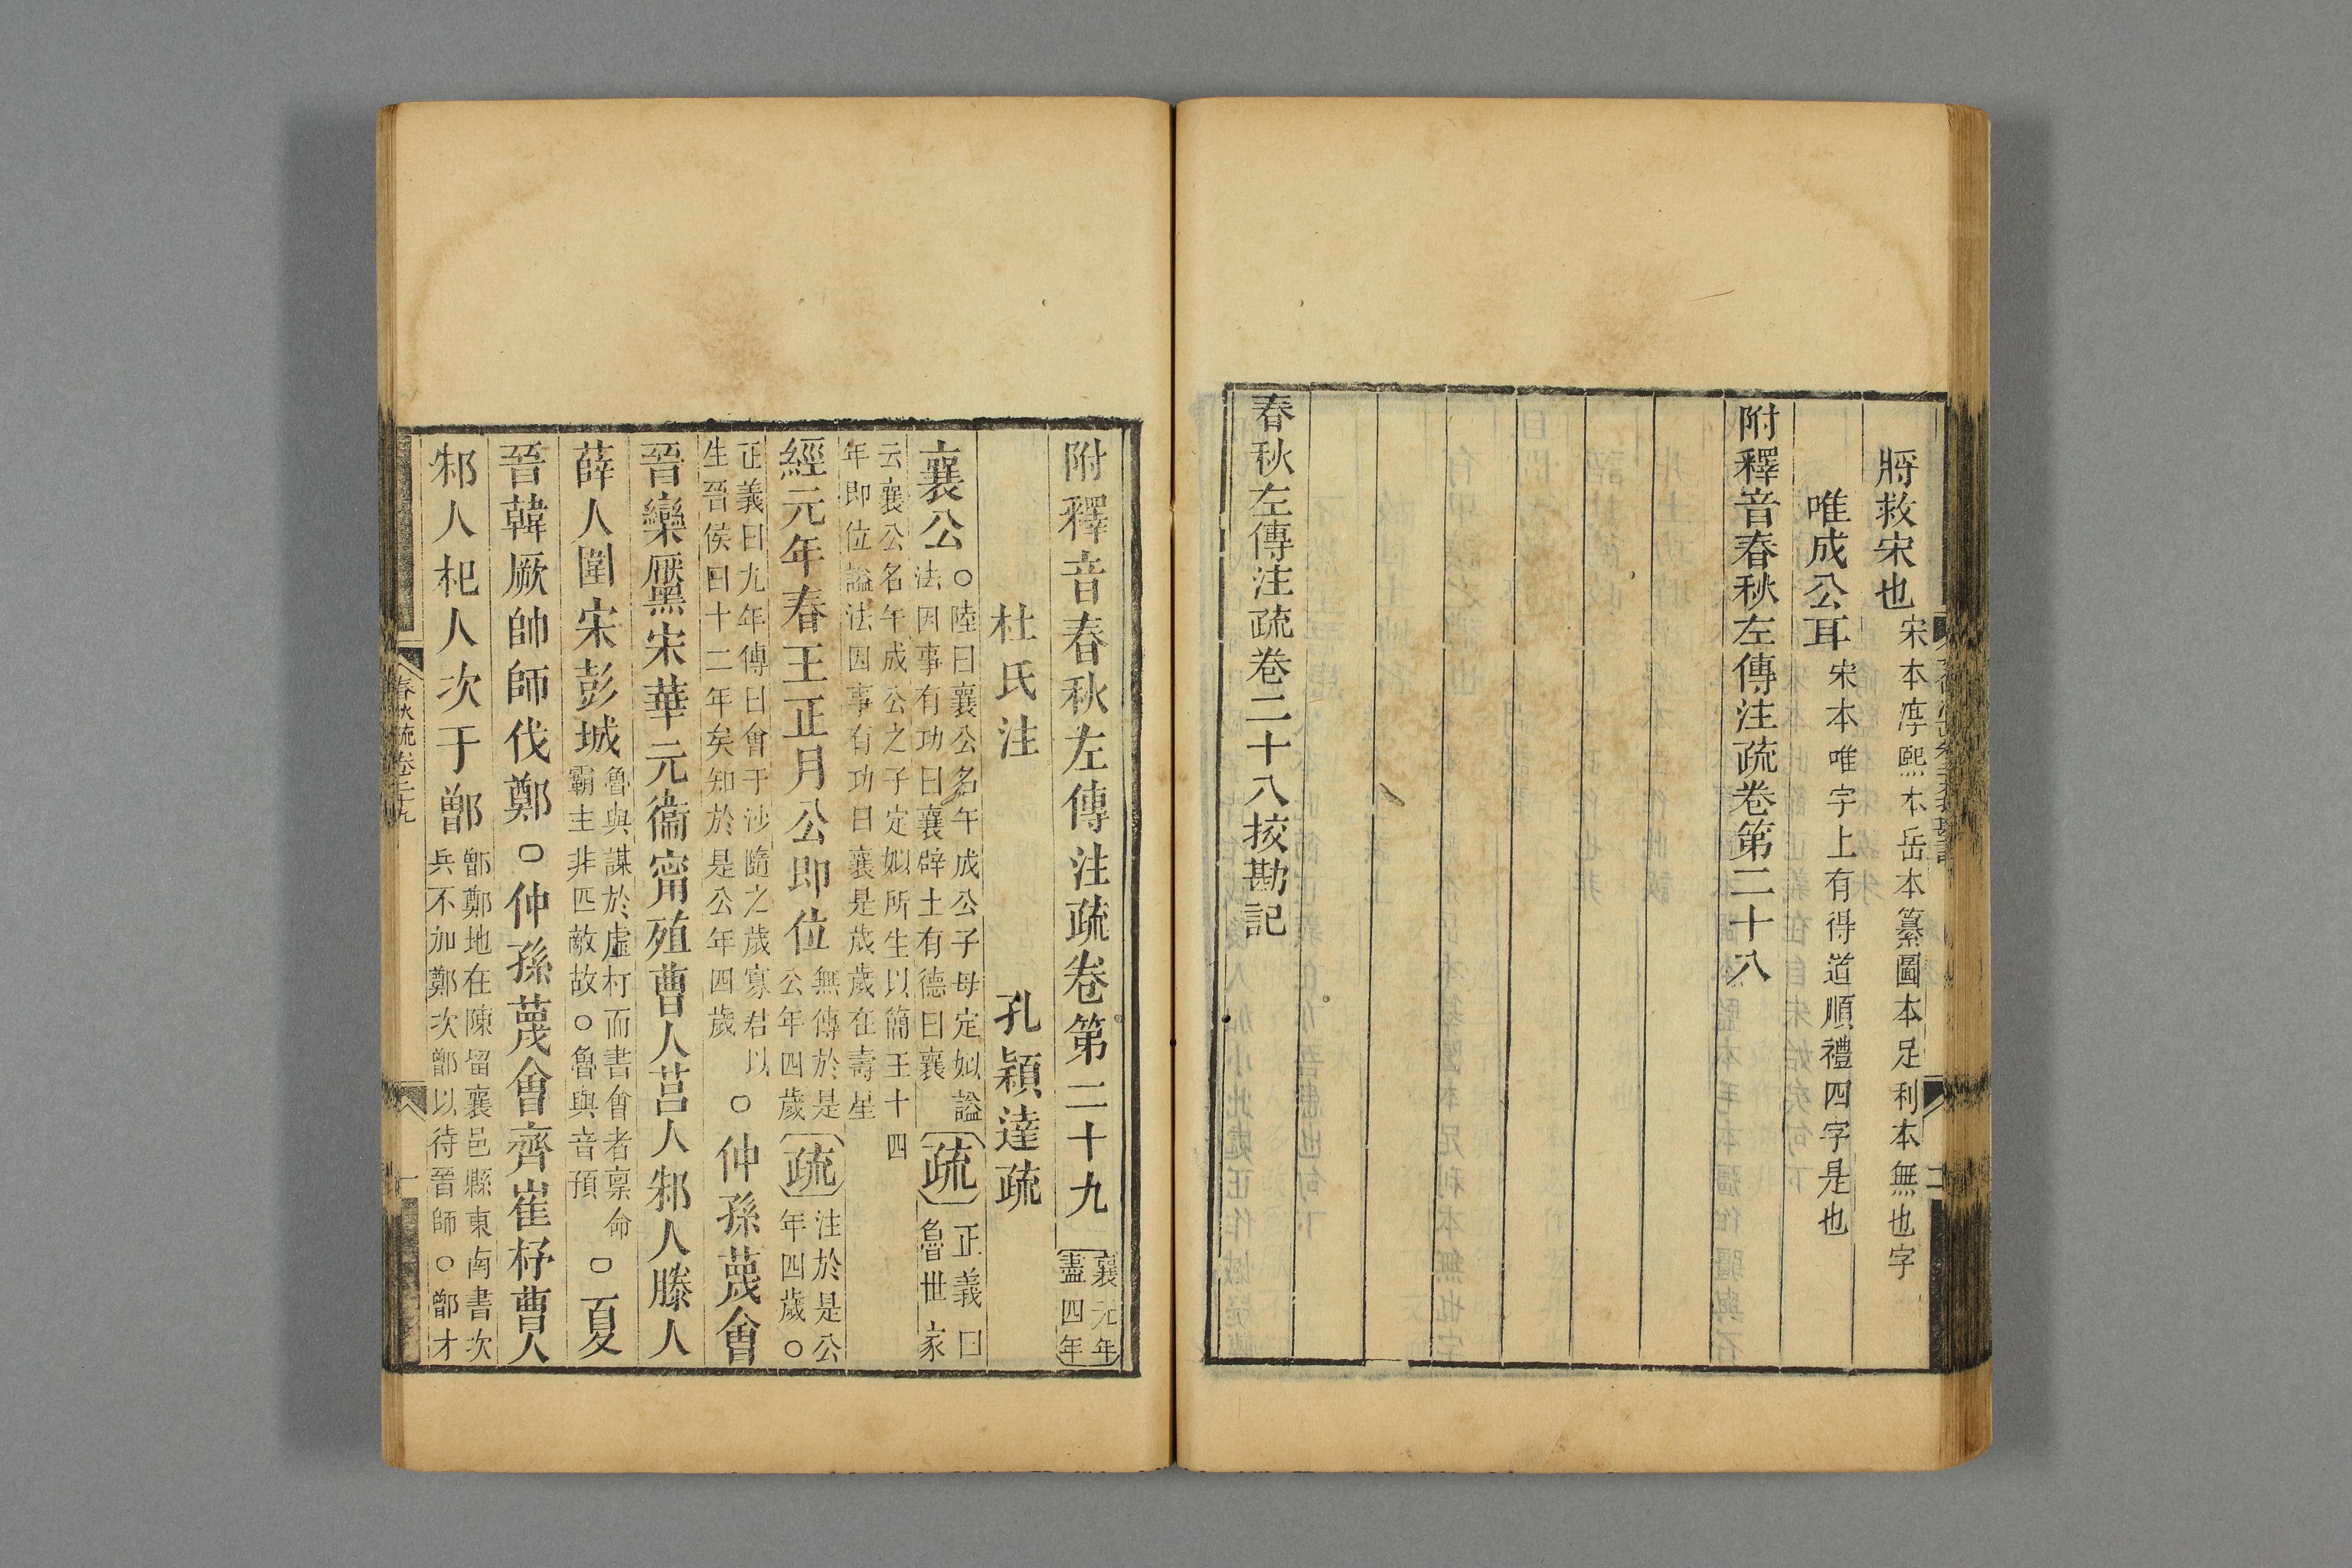 將救宋也宋本淳熙本岳本纂圖本足利本無也字
唯成公耳宋本唯字上有得道順禮四字是也
附釋音春秋左傳注疏卷第二十八
春秋左傳注疏卷二十八挍勘記
附釋音春秋左傳注疏卷第二十九 襄元年盡四年
杜氏注 孔穎達疏
襄公○陸曰襄公名午成公子母定姒謚法因事有功曰襄辟土有德曰襄〔疏〕正義曰魯世家
云襄公名午成公之子定姒所生以簡王十四年即位謚法因事有功曰襄是歲歲在壽星
經元年春王正月公即位無傳於是公年四歲〔疏〕注於是公年四歲○
正義曰九年傳曰會于沙隨之歲寡君以生晉侯曰十二年矣知於是公年四歲○仲孫蔑會
晉欒黡宋華元衞甯殖曹人莒人邾人滕人
薛人圍宋彭城魯與謀於虛朾而書會者稟命霸主非匹敵故○魯與音預○夏
晉韓厥帥師伐鄭○仲孫蔑會齊崔杼曹人
邾人杞人次于鄫鄫鄭地在陳留襄邑縣東南書次兵不加鄭次鄫以待晉師○鄫才
春秋疏卷二十九
一